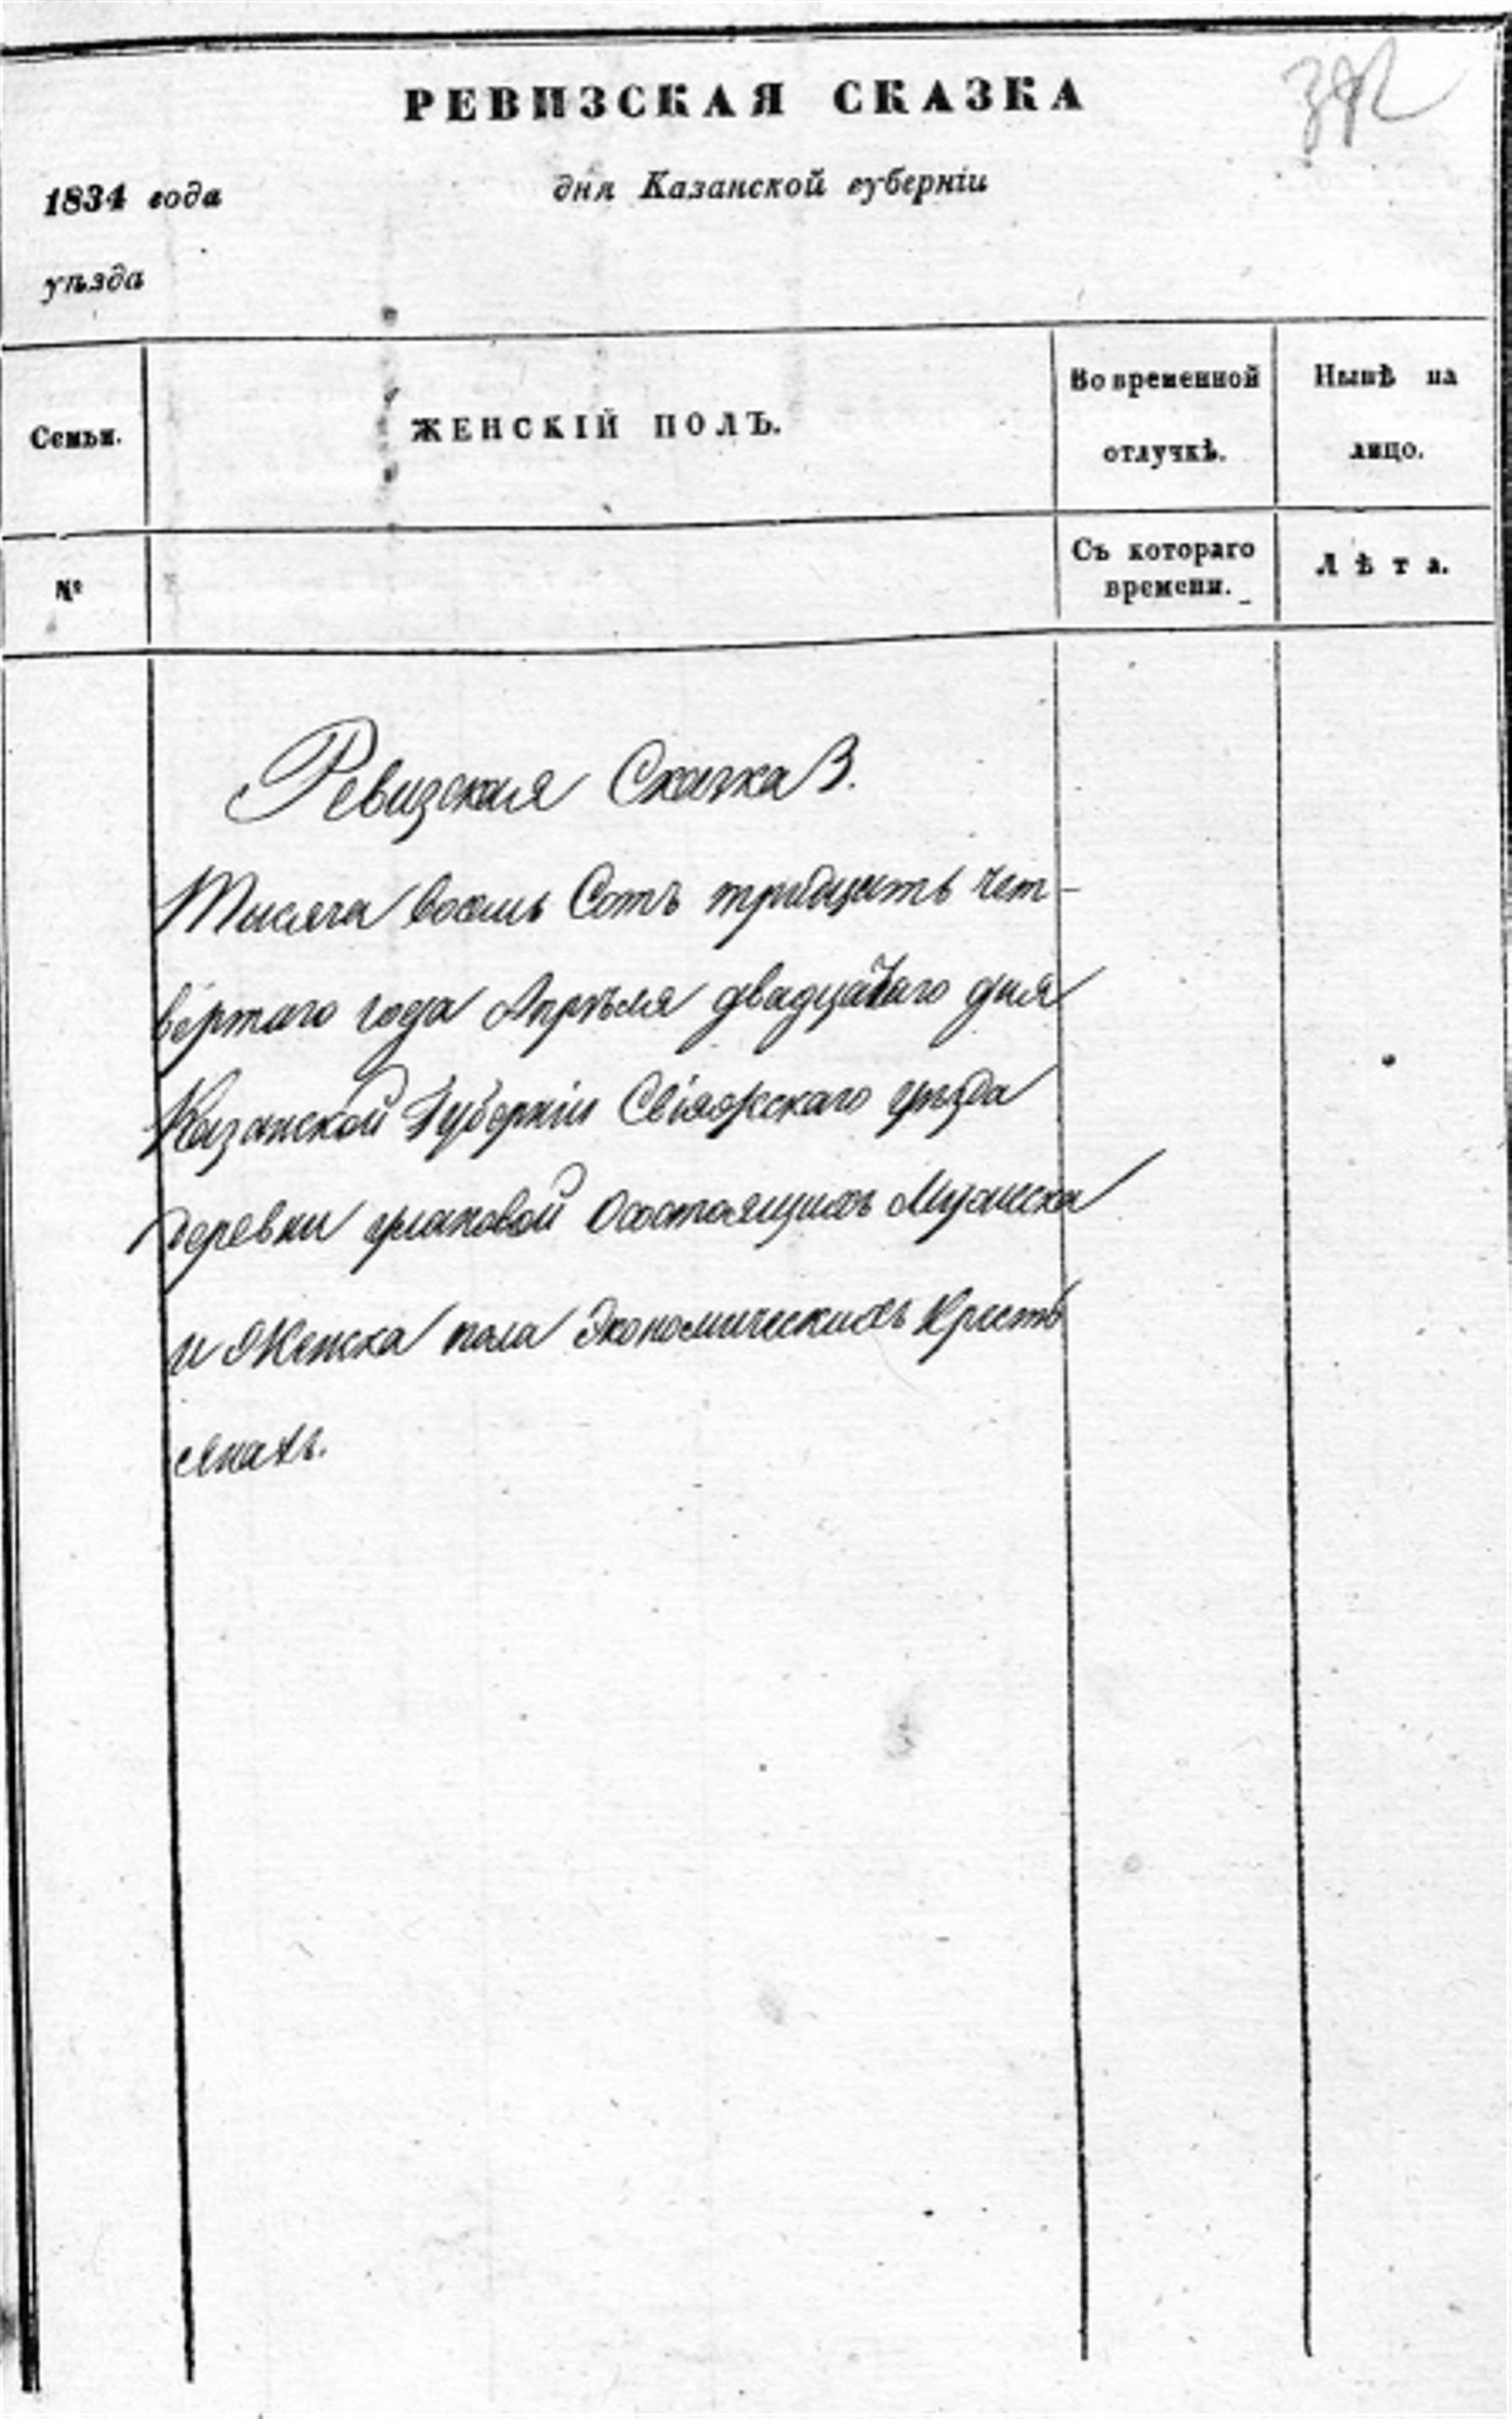 РЕВИЗСКАЯ СКАЗКА
1834 года дня Казанской губерніи
уѣзда
Семьи.
ЖЕНСКІЙ ПОЛЪ.
Во временной
отлучкѣ.
Нынѣ на
лицо.
№
Съ котораго
времени.
Лѣта.
Ревизская Сказка
Тысяча восемь Сотъ тридцать чет-
вертаго года Апрѣля двадцатаго дня
Казанской Губерніи Свіяжскаго уѣзда
деревни Осостоящихъ Мужеска
и Женска пола Экономическихъ Кресть
янахъ.